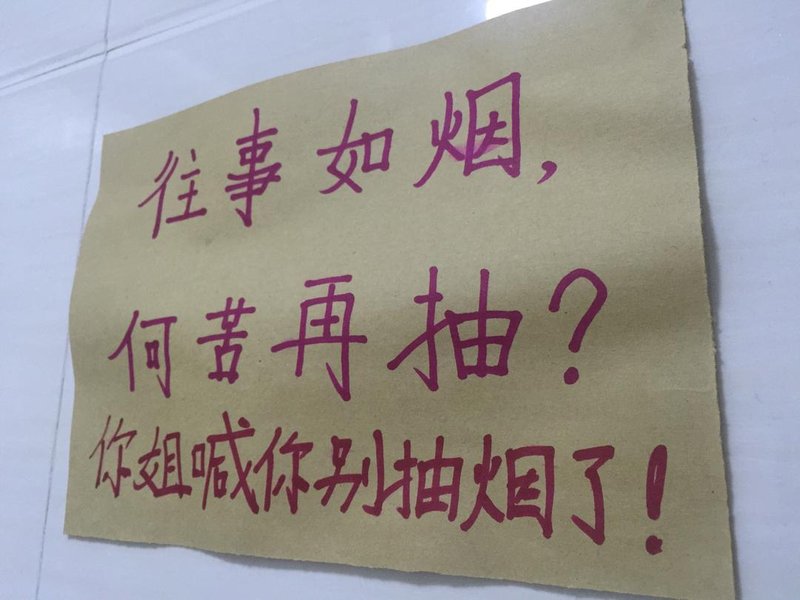 往事如烟，
何苦再抽？
你姐喊你别抽烟了！